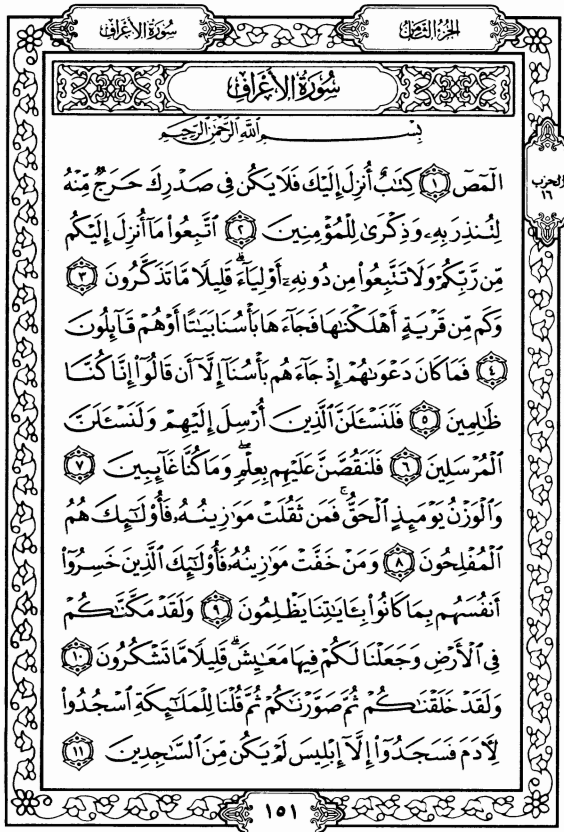 سُورَةُ الأَعْرَافِ
الجُزءُ الثَّامِنُ
سُورَةُ الأَعْرَافِ
بِسْمِ اللَّهِ الرَّحْمَٰنِ الرَّحِيمِ
الحزب
١٦
الٓمٓصٓ ١ كِتَٰبٌ أُنزِلَ إِلَيْكَ فَلَا يَكُن فِى صَدْرِكَ حَرَجٌ مِّنْهُ
لِتُنذِرَ بِهِۦ وَذِكْرَىٰ لِلْمُؤْمِنِينَ ٢ ٱتَّبِعُوا۟ مَآ أُنزِلَ إِلَيْكُم
مِّن رَّبِّكُمْ وَلَا تَتَّبِعُوا۟ مِن دُونِهِۦٓ أَوْلِيَآءَ ۗ قَلِيلًا مَّا تَذَكَّرُونَ ٣
وَكَم مِّن قَرْيَةٍ أَهْلَكْنَٰهَا فَجَآءَهَا بَأْسُنَا بَيَٰتًا أَوْ هُمْ قَآئِلُونَ
٤ فَمَا كَانَ دَعْوَىٰهُمْ إِذْ جَآءَهُم بَأْسُنَآ إِلَّآ أَن قَالُوٓا۟ إِنَّا كُنَّا
ظَٰلِمِينَ ٥ فَلَنَسْـَٔلَنَّ ٱلَّذِينَ أُرْسِلَ إِلَيْهِمْ وَلَنَسْـَٔلَنَّ
ٱلْمُرْسَلِينَ ٦ فَلَنَقُصَّنَّ عَلَيْهِم بِعِلْمٍ ۖ وَمَا كُنَّا غَآئِبِينَ ٧
وَٱلْوَزْنُ يَوْمَئِذٍ ٱلْحَقُّ ۚ فَمَن ثَقُلَتْ مَوَٰزِينُهُۥ فَأُو۟لَٰٓئِكَ هُمُ
ٱلْمُفْلِحُونَ ٨ وَمَنْ خَفَّتْ مَوَٰزِينُهُۥ فَأُو۟لَٰٓئِكَ ٱلَّذِينَ خَسِرُوٓا۟
أَنفُسَهُم بِمَا كَانُوا۟ بِـَٔايَٰتِنَا يَظْلِمُونَ ٩ وَلَقَدْ مَكَّنَّٰكُمْ
فِى ٱلْأَرْضِ وَجَعَلْنَا لَكُمْ فِيهَا مَعَٰيِشَ ۗ قَلِيلًا مَّا تَشْكُرُونَ ١٠
وَلَقَدْ خَلَقْنَٰكُمْ ثُمَّ صَوَّرْنَٰكُمْ ثُمَّ قُلْنَا لِلْمَلَٰٓئِكَةِ ٱسْجُدُوا۟
لِـَٔادَمَ فَسَجَدُوٓا۟ إِلَّآ إِبْلِيسَ لَمْ يَكُن مِّنَ ٱلسَّٰجِدِينَ ١١
١٥١